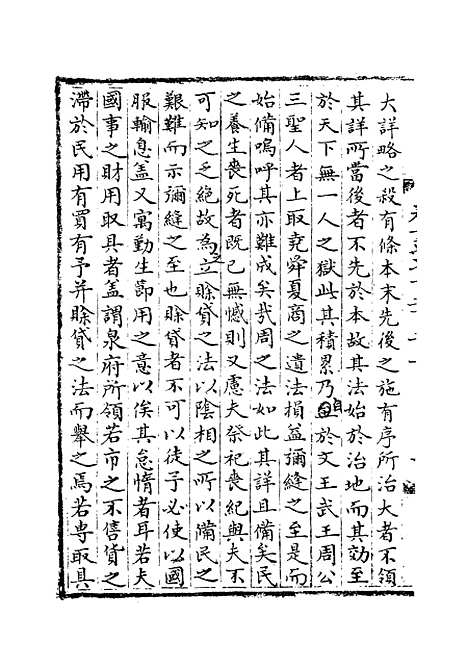 大詳略之殺有條本末先後之施有序所治大者不領
其詳所當後者不先於本故其法始於治地而其効至
於天下無一人之獄此其積累乃自於文王武王周公
三聖人者上取堯舜夏商之遺法損益彌縫之至是而
始備嗚呼其亦難成矣㢤周之法如此其詳且備矣民
之養生喪死者既已無憾則又慮夫祭祀喪紀與夫不
可知之乏絶故為之立賒貸之法以陰相之所以備民之
艱難而示彌縫之至也賒貸者不可以徒予必使以國
服輸息盖又寓勤生節用之意以俟其怠惰者耳若夫
國事之財用取具者盖謂泉府所領若市之不售貨之
滯於民用有買有予并賒貸之法而舉之焉若専取具